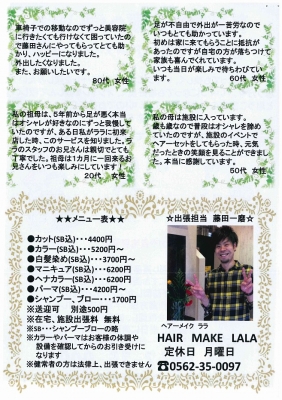 車椅子での移動なのでずっと美容院
に行きたくても行けなくて困っていたの
で藤田さんにやってもらってとても助
かり、ハッピーになりました。
外出したくなりました。
また、お願いしたいです。
80代 女性
足が不自由で外出が一苦労なので
いつもとても助かっています。
初めは家に来てもらうことに抵抗が
あったのですが自宅の方が落ちつけて
家族も喜んでくれています。
いつも当日が楽しみで待ちわびてい
ます。
60代 女性
私の祖母は、5年前から足が悪く本当
はオシャレが好きなのにずっと我慢し
ていたのですが、ある日私がララに初来
店した時、このサービスを知りました。ラ
ラのスタッフのお兄さんは親切でとても
丁寧でした。祖母は1カ月に一回来るお
兄さんをいつも楽しみにしています
20代 女性
私の母は施設に入っています。
歳も歳なので普段はオシャレを諦め
ていたのですが、施設のイベントで
ヘアーセットをしてもらった時、元気
だったときの笑顔を見ることができまし
た。本当に感謝しています。
50代 女性
★★メニュー表★★
●カット(SB込)・・・4400円
●カラー(SB込)・・・5200円～
●白髪染め(SB込)・・・3700円～
●マニキュア(SB込)・・・6200円
●ヘナカラー(SB込)・・・6200円
●パーマ(SB込)・・・4200円～
●シャンプー、ブロー・・・1700円
※送迎可 別途500円
※在宅、施設出張料 無料
※SB・・・シャンプーブローの略
※カラーやパーマはお客様の体調や
設備を確認してからのお引き受けに
なります
※健常者の方は法律上、出張できません
☆出張担当 藤田一磨☆
ヘアーメイク ララ
HAIR MAKE LALA
定休日 月曜日
☎0562-35-0097